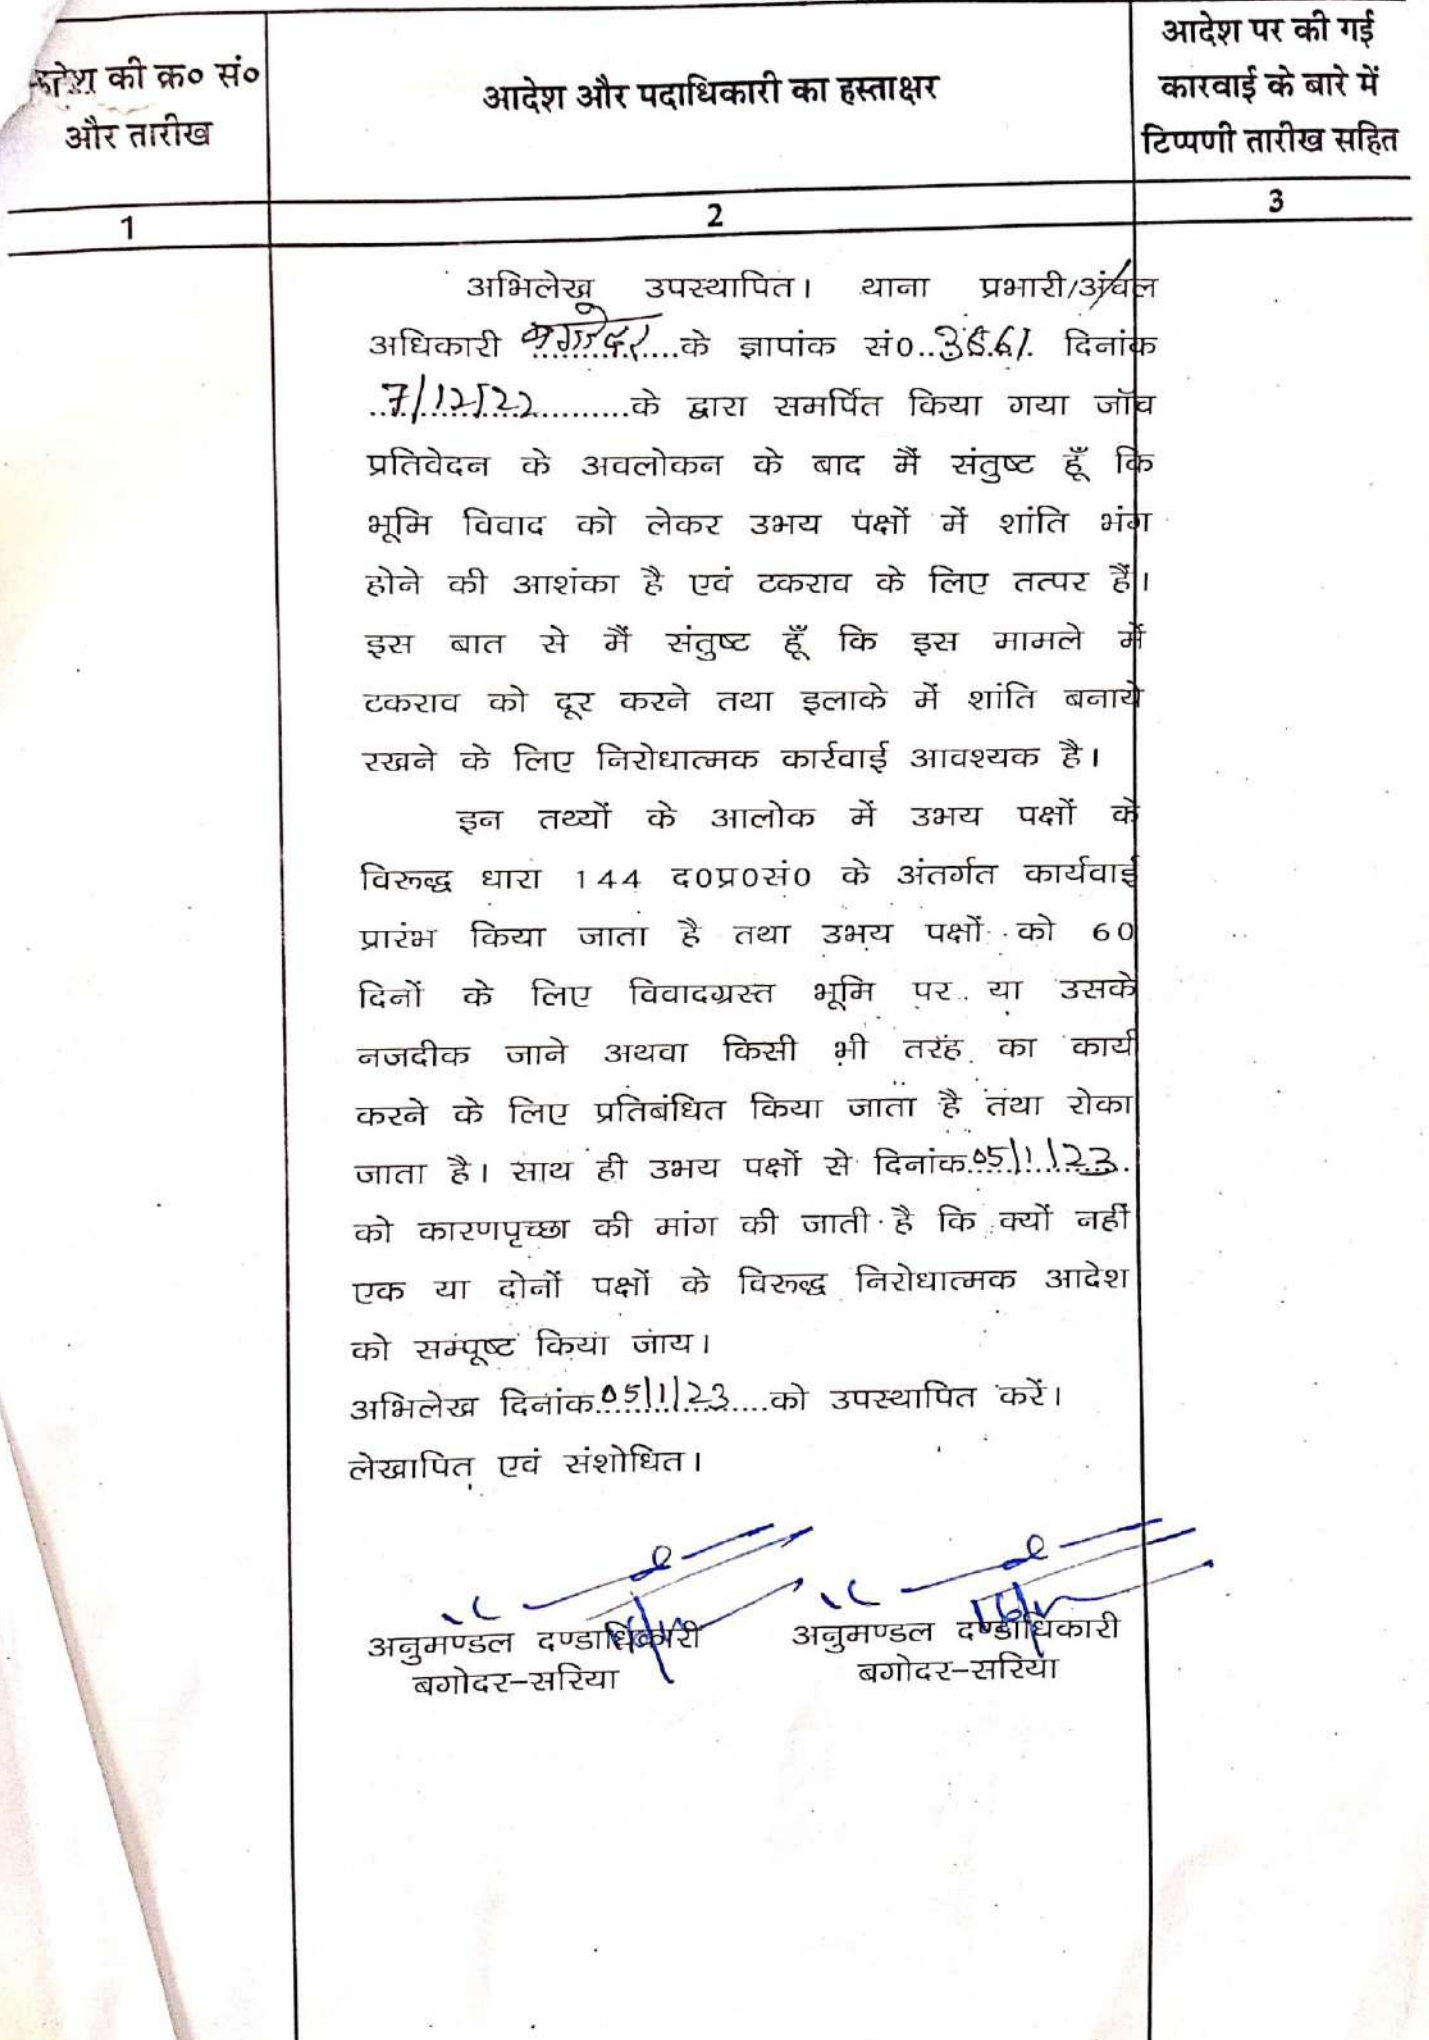 आदेश की क्र० सं०
और तारीख
आदेश और पदाधिकारी का हस्ताक्षर
आदेश पर की गई
कारवाई के बारे में
टिप्पणी तारीख सहित
1
2
3
अभिलेख उपस्थापित। थाना प्रभारी/अंचल
अधिकारी बगोदर के ज्ञापांक सं0.. दिनांक
7/12/22 के द्वारा समर्पित किया गया जॉच
प्रतिवेदन के अवलोकन के बाद मैं संतुष्ट हूँ कि
भूमि विवाद को लेकर उभय पक्षों में शांति भंग
होने की आशंका है एवं टकराव के लिए तत्पर हैं।
इस बात से मैं संतुष्ट हूँ कि इस मामले में
टकराव को दूर करने तथा इलाके में शांति बनाये
रखने के लिए निरोधात्मक कार्रवाई आवश्यक है।
इन तथ्यों के आलोक में उभय पक्षों के
विरूद्ध धारा 144 द0प्र0सं0 के अंतर्गत कार्यवाई
प्रारंभ किया जाता है तथा उभय पक्षों को 60
दिनों के लिए विवादग्रस्त भूमि पर या उसके
नजदीक जाने अथवा किसी भी तरह का कार्य
करने के लिए प्रतिबंधित किया जाता है तथा रोका
जाता है। साथ ही उभय पक्षों से दिनांक 05/1/23
को कारणपृच्छा की मांग की जाती है कि क्यों नहीं
एक या दोनों पक्षों के विरूद्ध निरोधात्मक आदेश
को सम्पूष्ट किया जाय।
अभिलेख दिनांक 05/1/23 को उपस्थापित करें।
लेखापित एवं संशोधित।
अनुमण्डल दण्डाधिकारी
बगोदर-सरिया
अनुमण्डल दण्डाधिकारी
बगोदर-सरिया